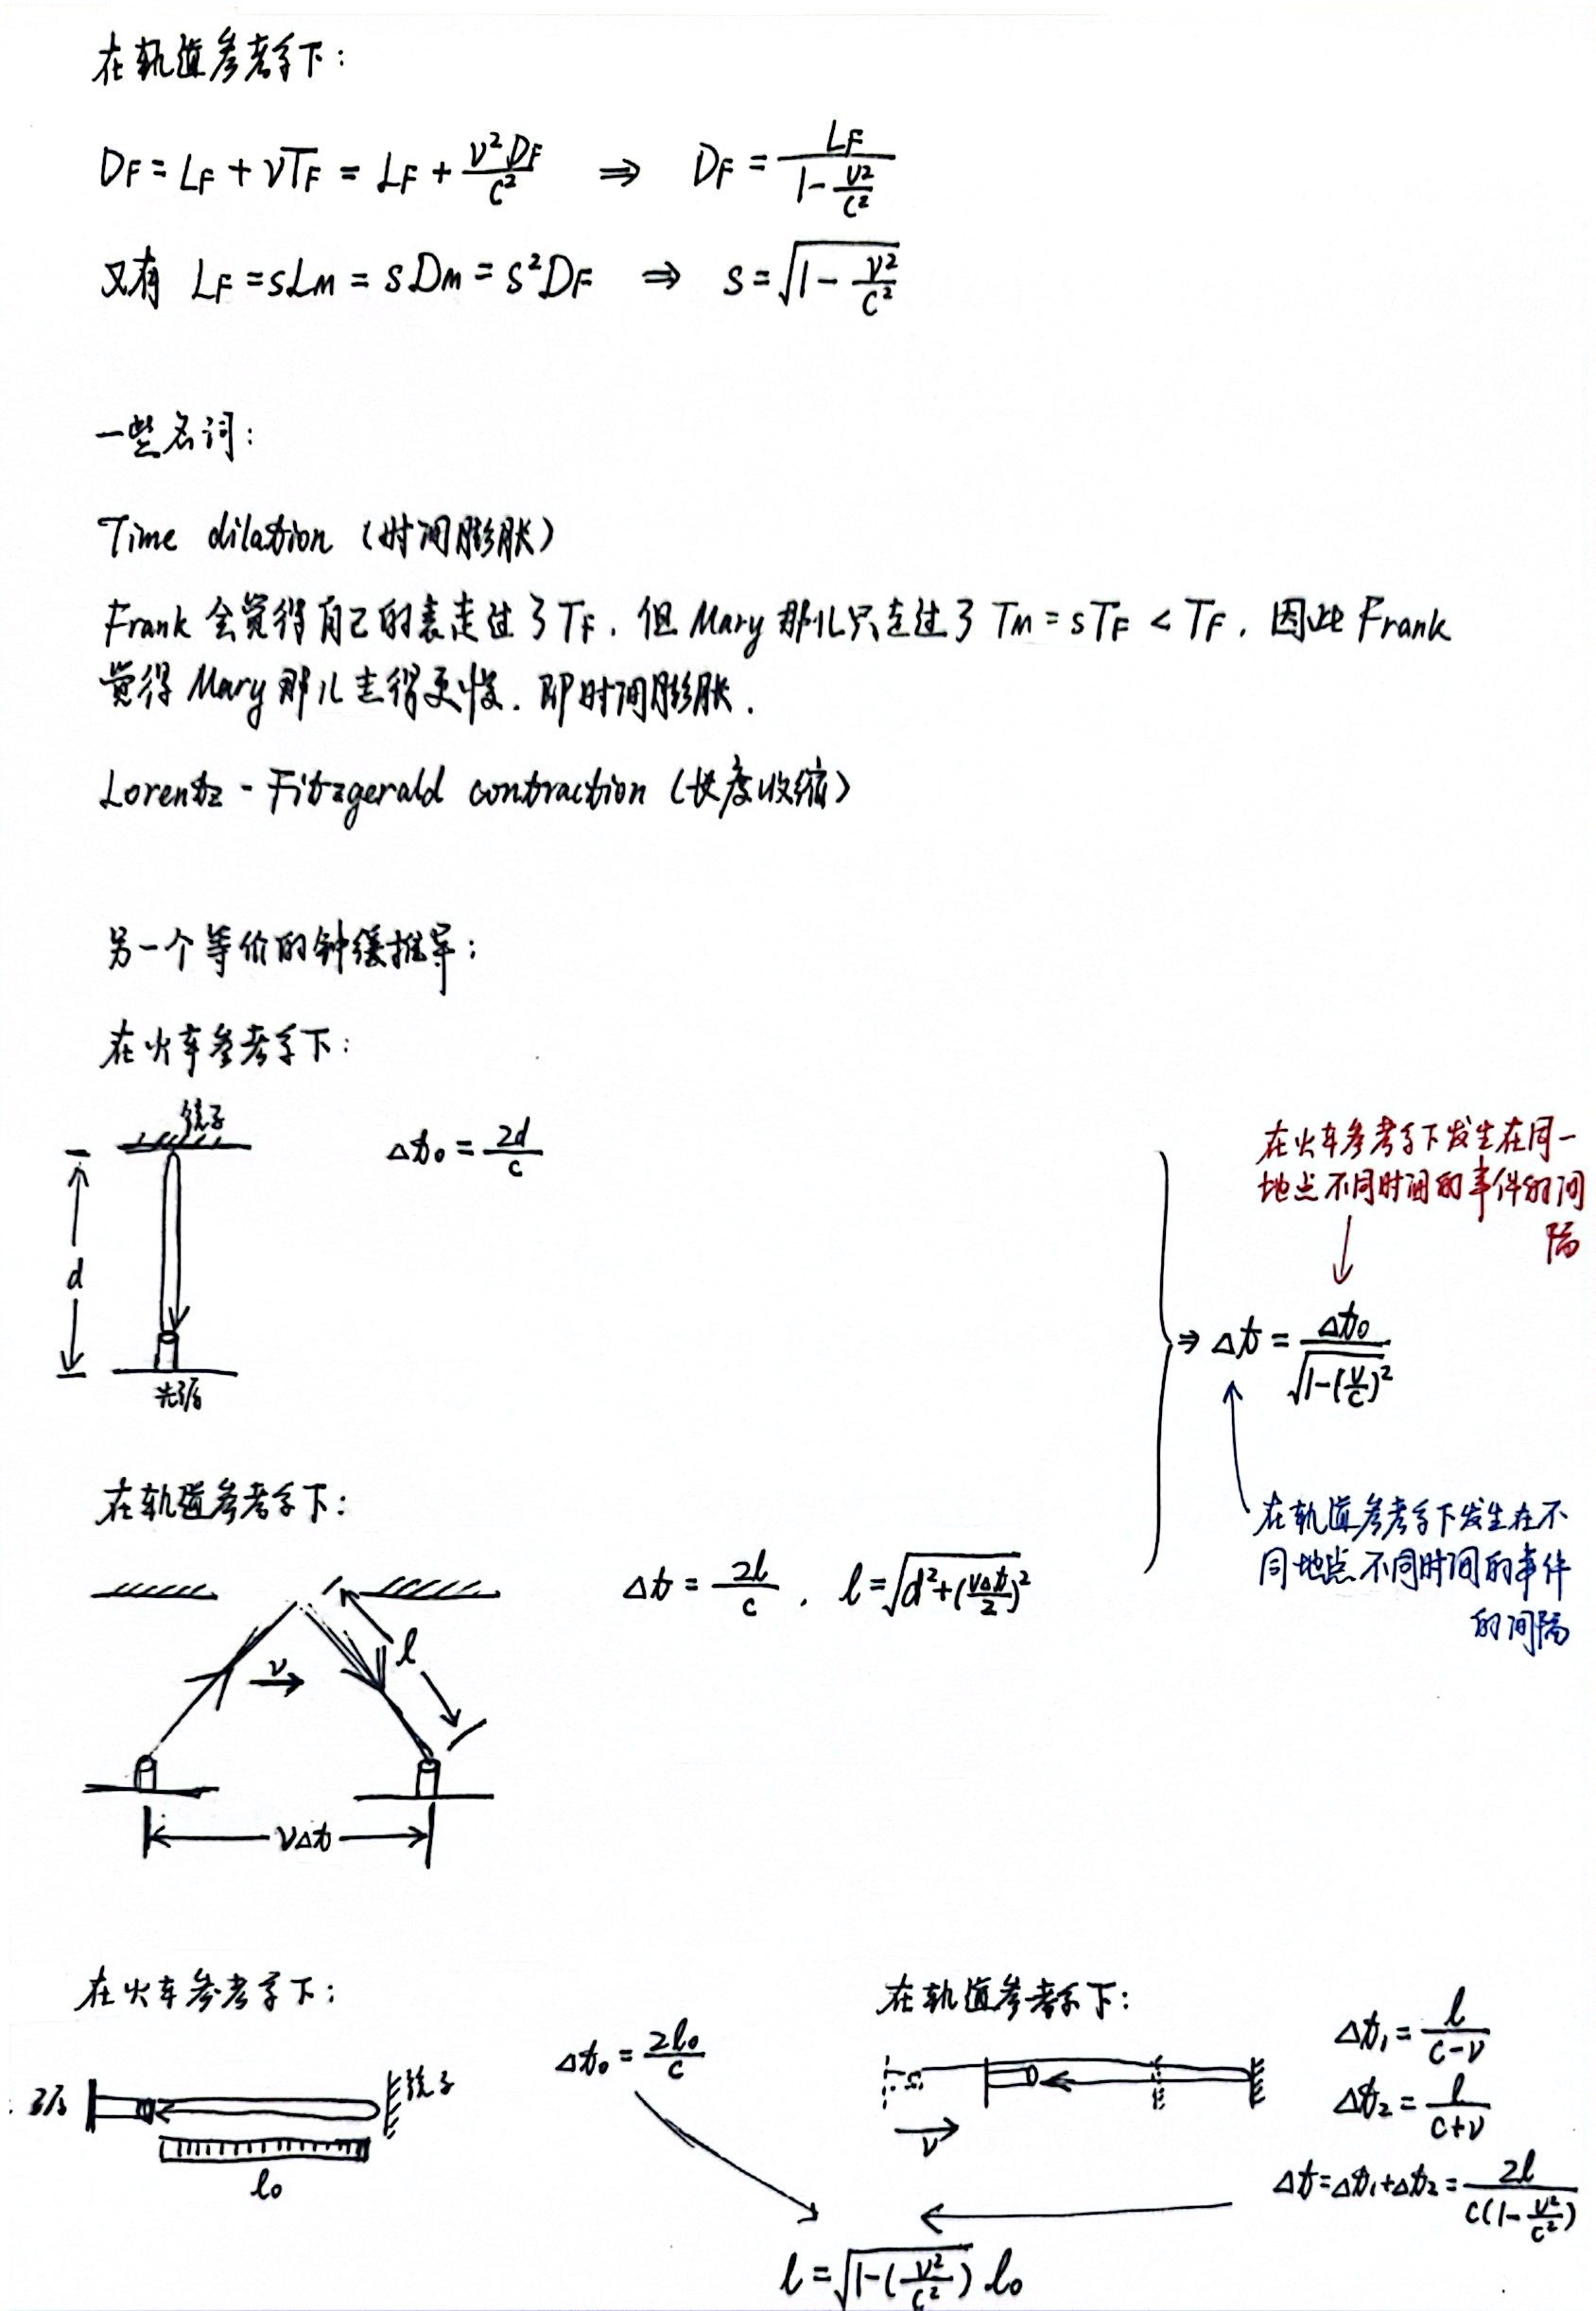 在轨道参考系下：
D_F = L_F + vT_F = L_F + \frac{v^2 D_F}{c^2} ⇒ D_F = \frac{L_F}{1-\frac{v^2}{c^2}}
又有 L_F = sL_M = sD_M = s^2D_F ⇒ s = \sqrt{1-\frac{v^2}{c^2}}
一些名词：
Time dilation (时间膨胀)
Frank 会觉得自己的表走过了 T_F，但 Mary 那儿只走过了 T_M = sT_F < T_F，因此 Frank
觉得 Mary 那儿走得更慢．即时间膨胀．
Lorentz - Fitzgerald contraction (长度收缩)
另一个等价的钟缓推导：
在火车参考系下：
镜子
Δt_0 = \frac{2d}{c}
d
光源
在轨道参考系下：
Δt = \frac{2l}{c}, l = \sqrt{d^2+(\frac{vΔt}{2})^2}
v
l
vΔt
在火车参考系下发生在同一
地点不同时间的事件的间
隔
⇒ Δt = \frac{Δt_0}{\sqrt{1-(\frac{v}{c})^2}}
在轨道参考系下发生在不
同地点不同时间的事件
的间隔
在火车参考系下：
镜子
l_0
Δt_0 = \frac{2l_0}{c}
在轨道参考系下：
v
Δt_1 = \frac{l}{c-v}
Δt_2 = \frac{l}{c+v}
Δt = Δt_1+Δt_2 = \frac{2l}{c(1-\frac{v^2}{c^2})}
l = \sqrt{1-(\frac{v^2}{c^2})} l_0